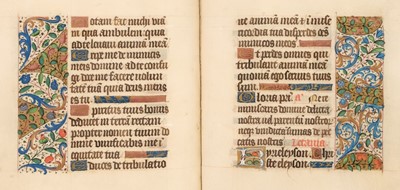 Notam fac michi viā
in qua ambulem: quia
ad te levavi animā meā
Eripe me de inimicis
meis domine ad te confu
gi doce me facere volun
tatē tuā quia deus meus
es tu
Spiritus tuus bonus
deducet me in terrā rectam
propter nomen tuum do
mine vivificabis me i
equitate tua
Educes de tribulatio
ne animā meā: et i mise
ricordia tua disperdes oēs
inimicos meos
Et perdes omnes qui
tribulant animā meā:
quoniam ego servus tuus
sum
Gloria pri. a. Ne re
miniscaris domine delicta
nostra vel parentum nostrorum
neqz vindictā sumas de pecca
tis nostris. Letania
Kyrieleyson. Chri
ste eleyson.